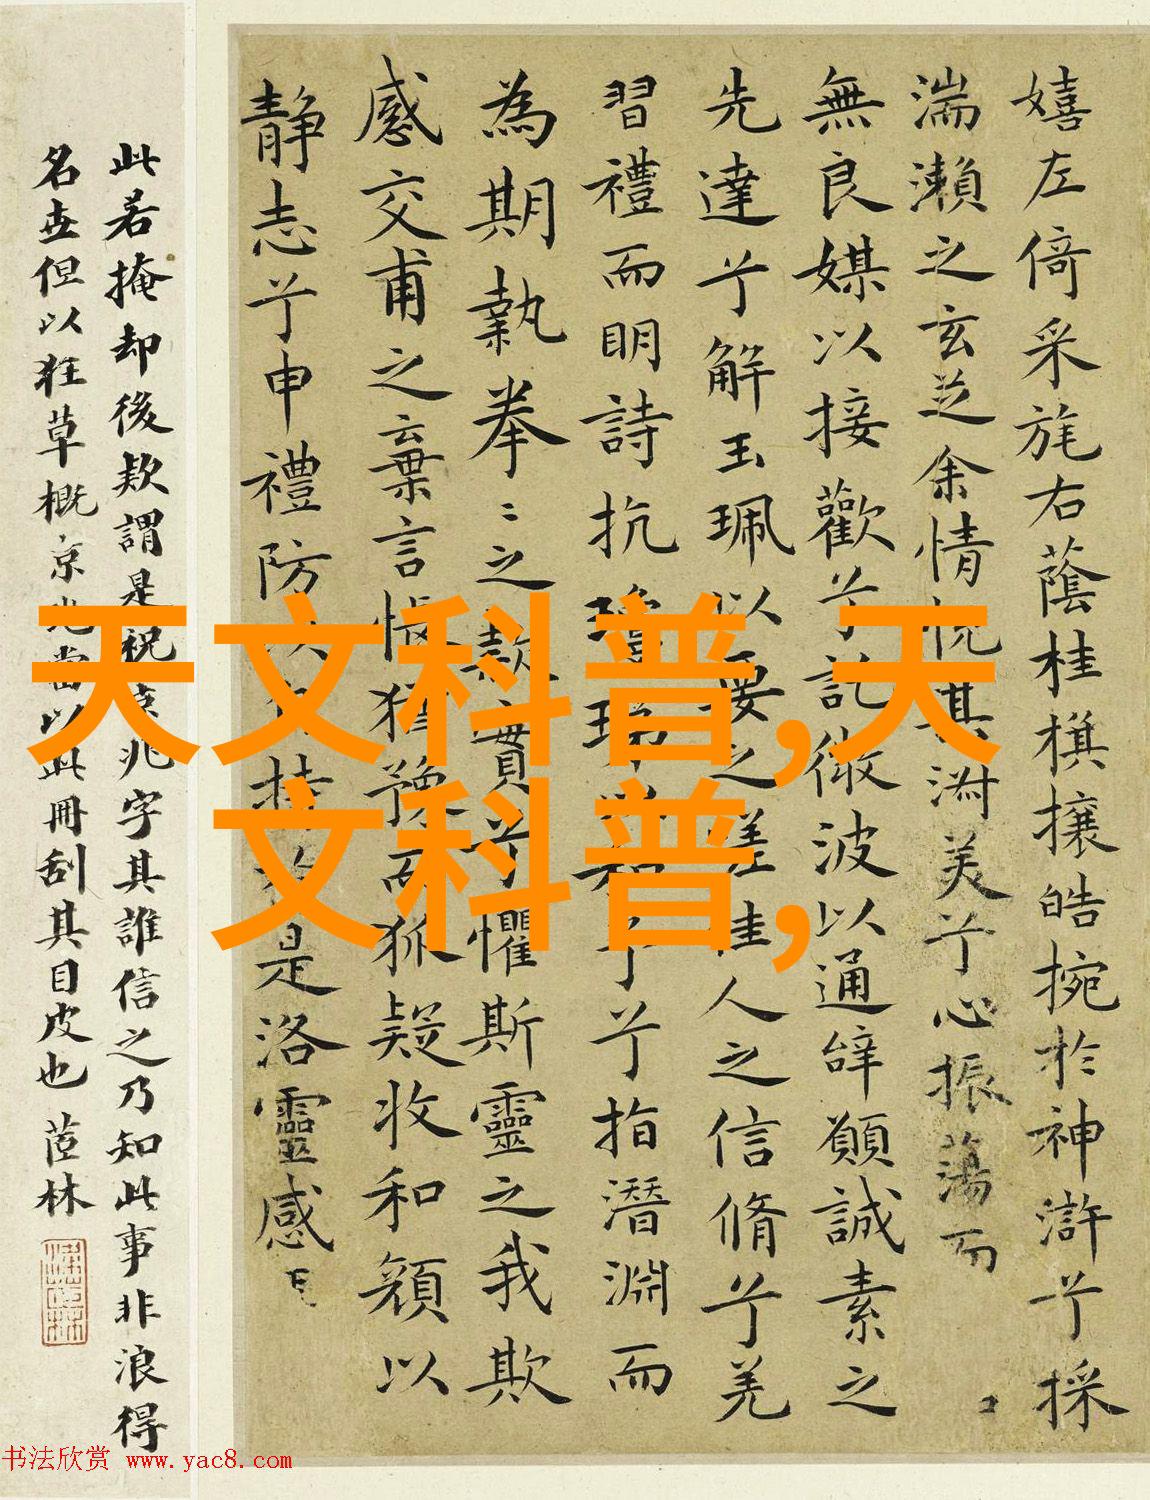 嬉左倚采旄右蔭桂旗攘皓捥於神滸兮採
湍瀨之玄芝余情悅其淑美兮心振蕩而
無良媒以接歡兮託微波以通辭願誠素之
先達兮解玉珮以要之嗟佳人之信脩兮羌
習禮而明詩抗瓊珶以和予兮指潛淵而
為期執拳〻之款實兮懼斯靈之我欺
感交甫之棄言悵猶豫而狐疑收和顏以
静志兮申禮防以自持於是洛靈感
此若掩却後款謂是祝京兆字其誰信之乃知此事非浪得
名世但以狂草概京兆當以此冊刮其目皮也 茝林
天文科普,天
文科普,
书法欣赏 www.yac8.com